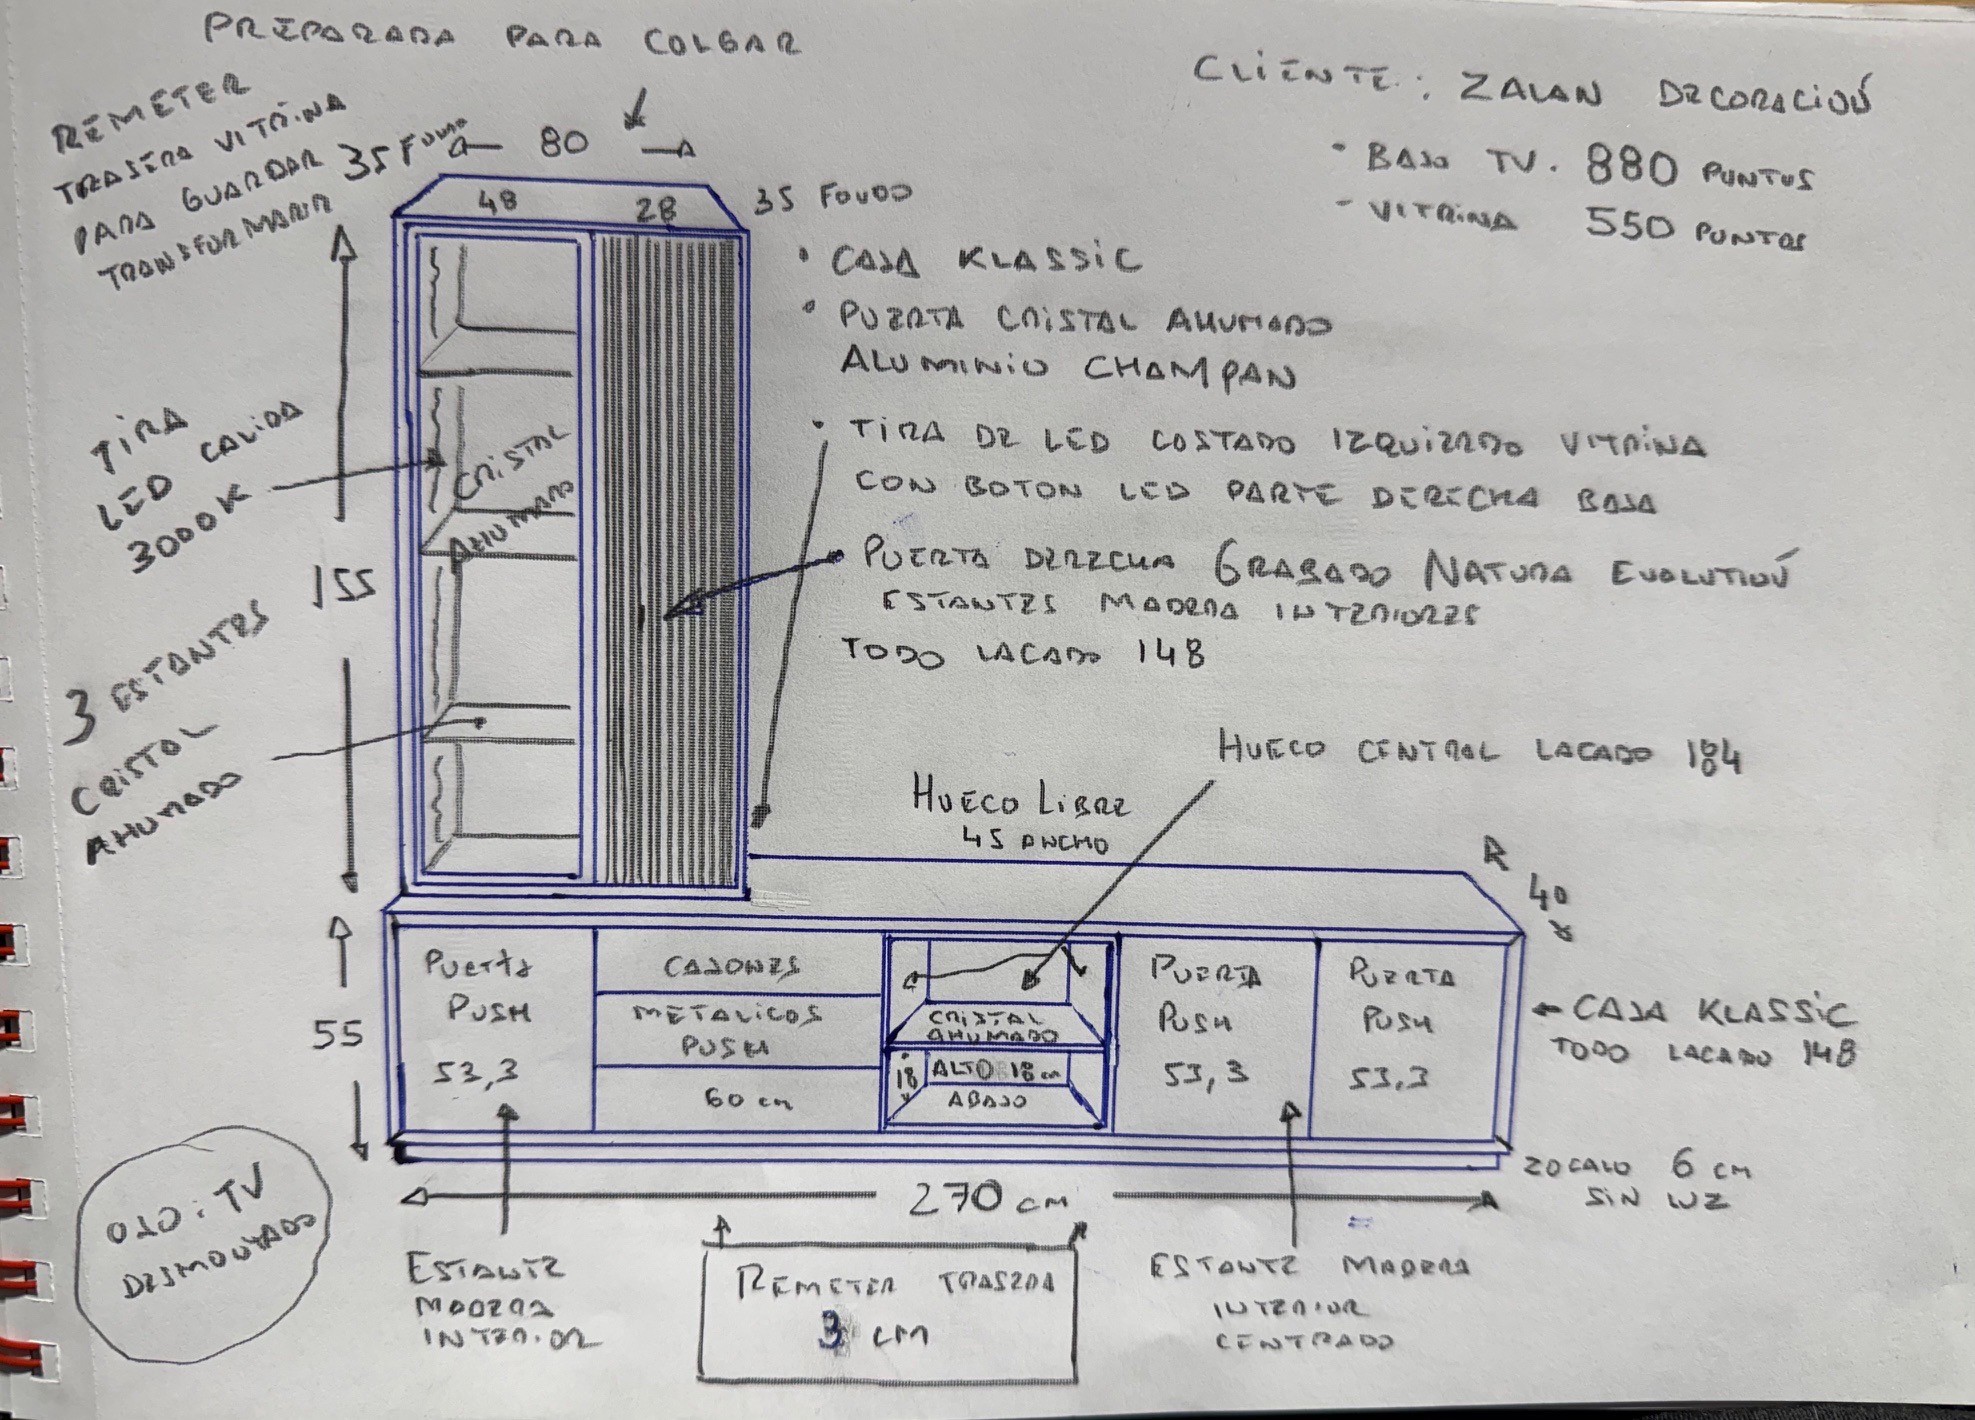 PREPARADA PARA COLGAR
REMETER
TRASERA VITRINA
PARA GUARDAR
TRANSFORMADOR
35 FONDO
80
CLIENTE: ZALAN DECORACIÓN
• BAJO TV. 880 PUNTOS
- VITRINA 550 PUNTOS
48
28
35 FONDO
• CAJA KLASSIC
• PUERTA CRISTAL AHUMADO
ALUMINIO CHAMPAN
• TIRA DE LED COSTADO IZQUIERDO VITRINA
CON BOTON LED PARTE DERECHA BAJA
PUERTA DERECHA GRABADO NATURA EVOLUTIÓN
ESTANTES MADERA INTERIORES
TODO LACADO 148
TIRA
LED CALIDA
3000K
CRISTAL
AHUMADO
155
3 ESTANTES
CRISTAL
AHUMADO
HUECO CENTRAL LACADO 184
HUECO LIBRE
45 ANCHO
40
55
PUERTA
PUSH
53,3
CAJONES
METALICOS
PUSH
60 cm
CRISTAL
AHUMADO
18
ALTO 18 cm
ABAJO
PUERTA
PUSH
53,3
PUERTA
PUSH
53,3
CAJA KLASSIC
TODO LACADO 148
ZOCALO 6 CM
SIN LUZ
270 CM
OJO: TV
DESMONTADO
ESTANTE
MADERA
INTERIOR
REMETER TRASERA
3 CM
ESTANTE MADERA
INTERIOR
CENTRADO